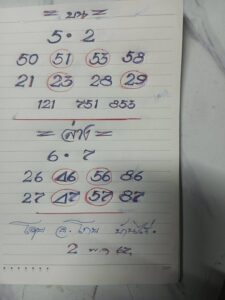 = บน =
5 · 2
50 51 53 58
21 23 28 29
121 751 853
= ล่าง =
6 · 7
26 46 56 86
27 47 57 87
โดย อ.
2 พ.ย. 67